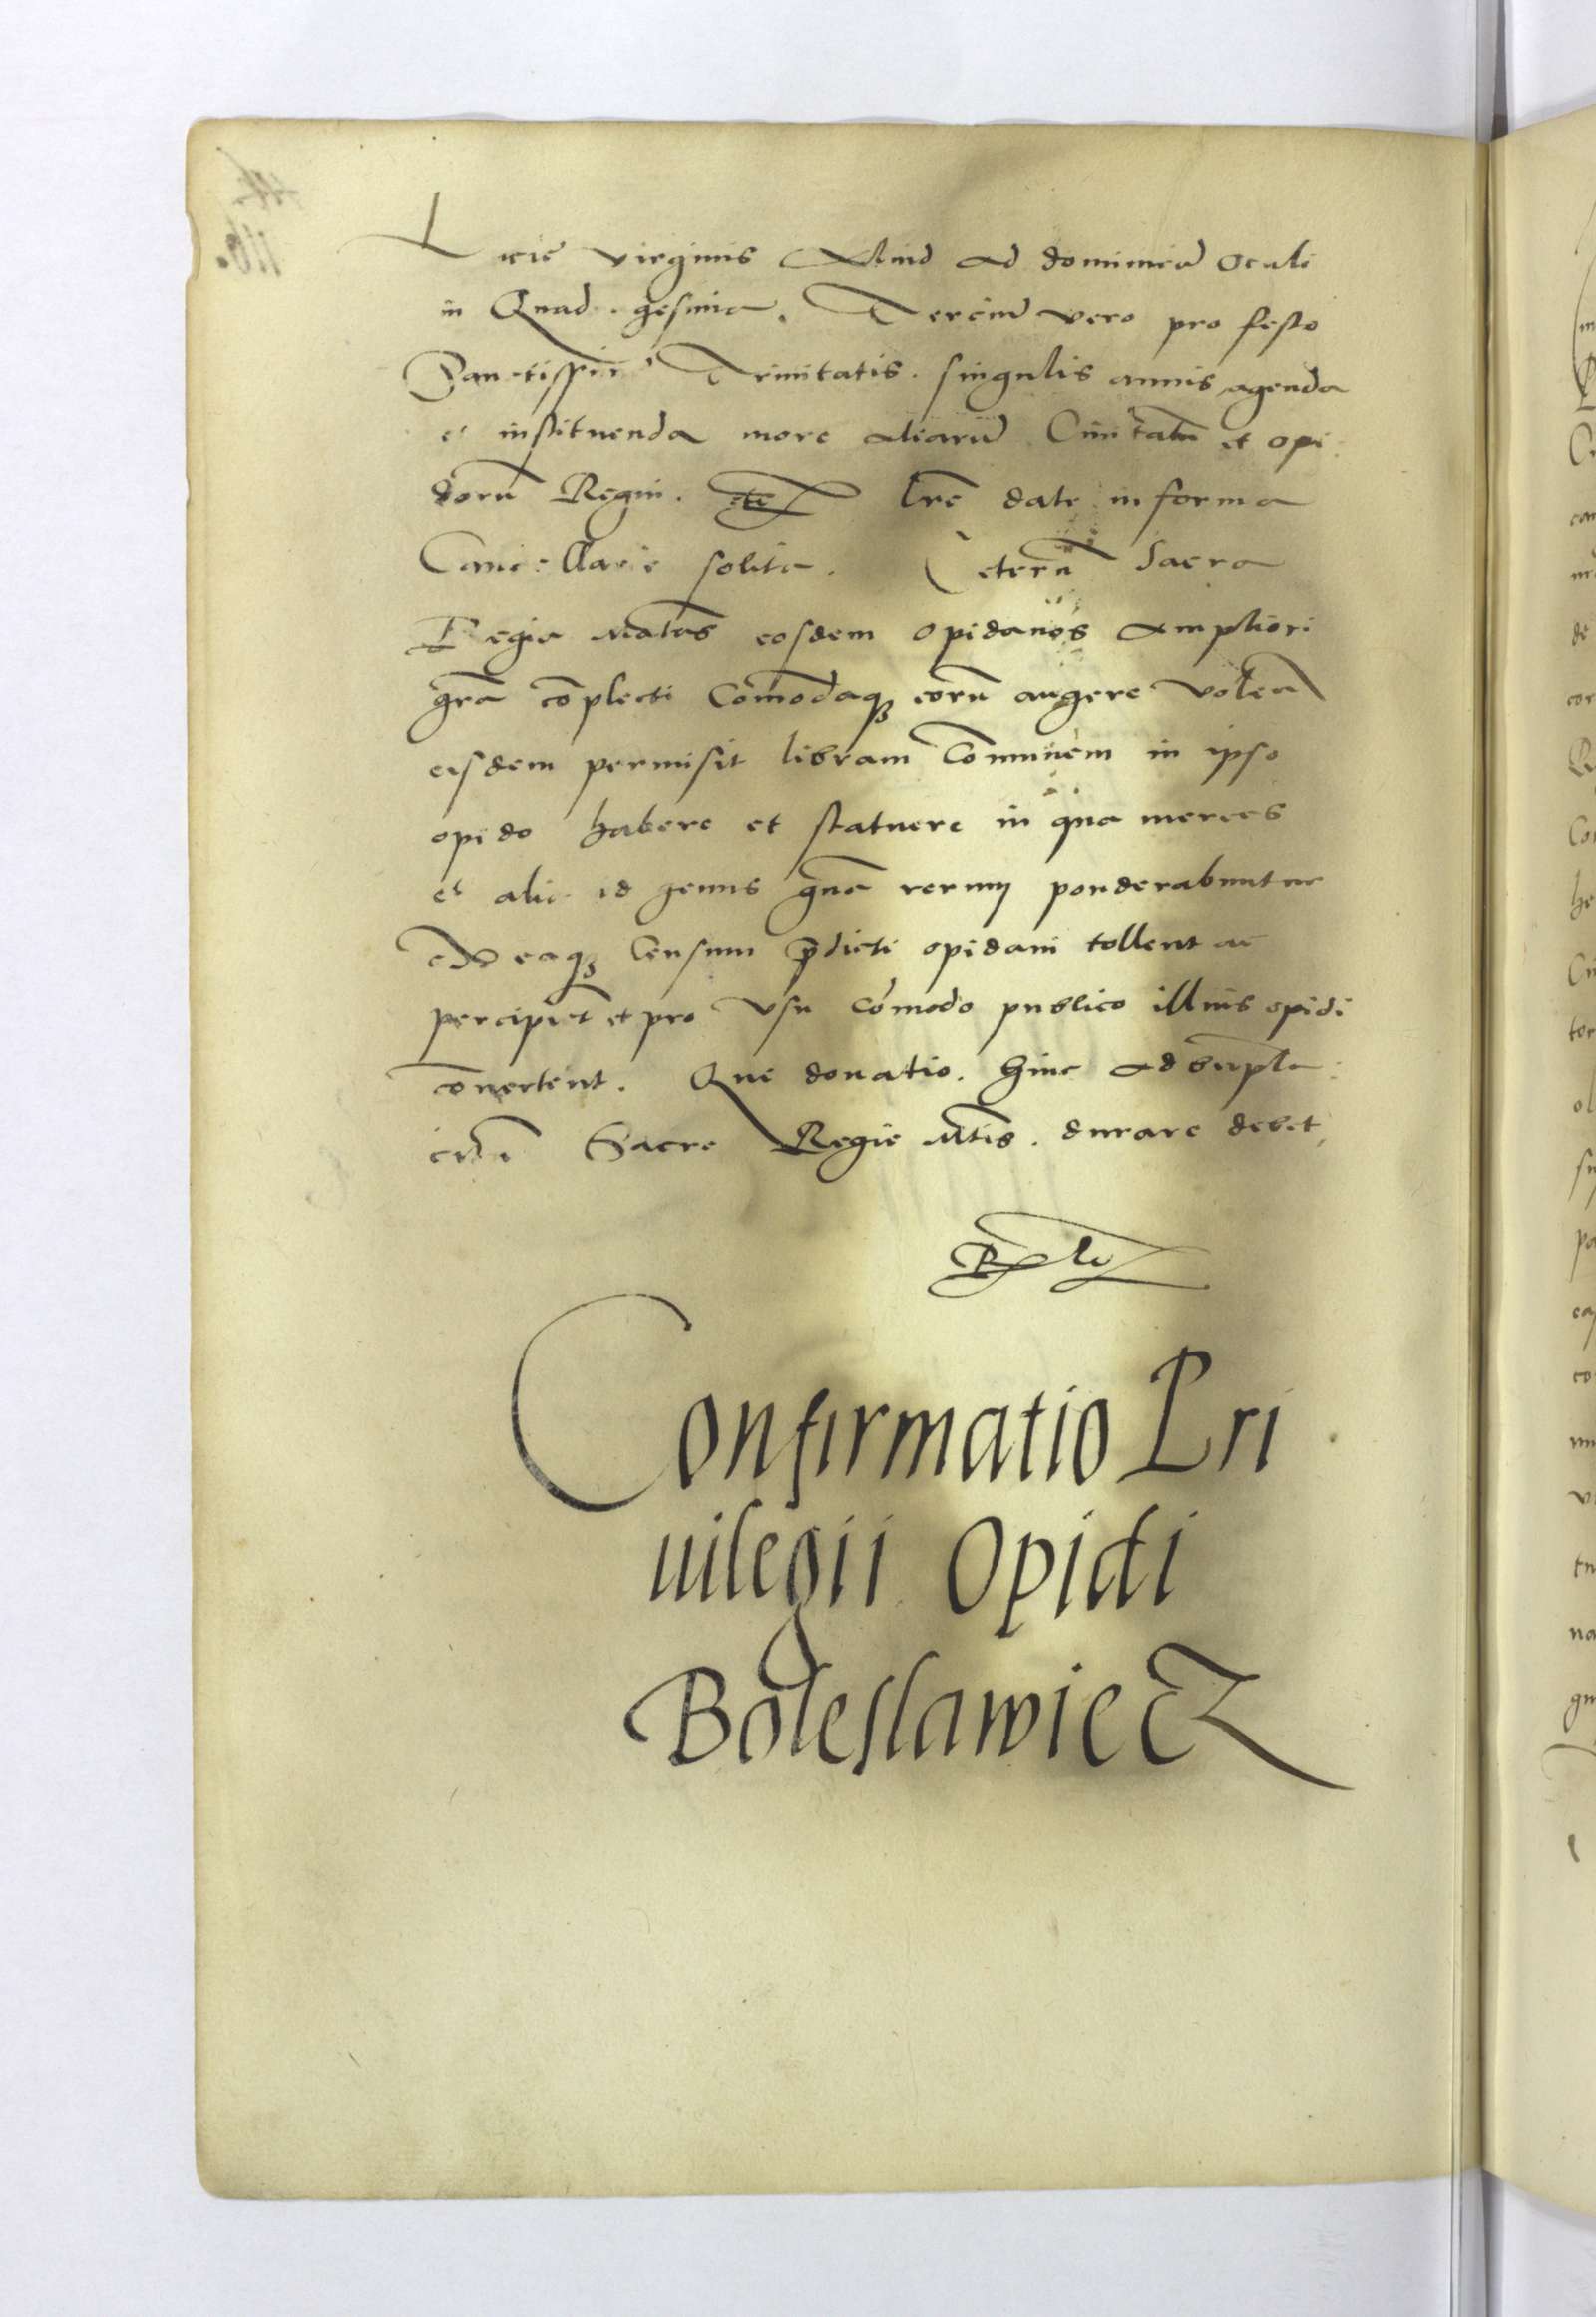 Lucie virginis Aliud ad dominicā Oculi
in Quadragesima. Terciū vero pro festo
Sanctissime Trinitatis. singulis annis agenda
et instituenda more aliarū Ciuitatū et opi
dorū Regni. etc Lrē date in forma
Cancellarie solita. Ceterū Sacra
Regia Maiēstas eosdem opidanos ampliori
grā cōplecti Cōmodaqȝ eorū augere volens
eisdem permisit libram Cōmunem in ipso
opido habere et statuere in qua merces
et alie id genus rerum ponderabuntur
Ab eaqȝ Censum p̄dicti opidani tollent ac
percipiēt et pro vsu cōmodo publico illius opidi
cōnertent. Que donatio. hinc ad bnpla
citū Sacre Regie Mtis. durare debet
Confirmatio Pri
uilegii Opidi
Boleslawiecz